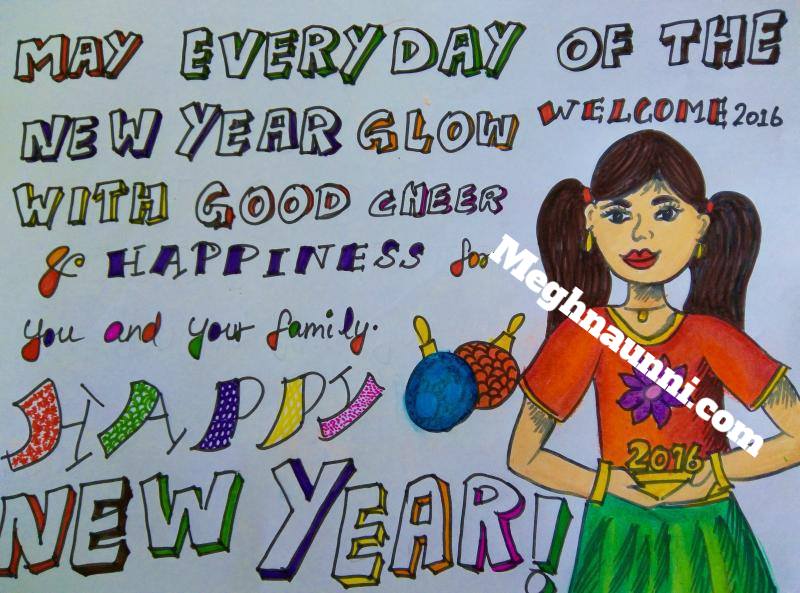 MAY EVERYDAY OF THE
NEW YEAR GLOW
WITH GOOD CHEER
& HAPPINESS for
you and your family.
HAPPY
NEW YEAR!
WELCOME 2016
2016
Meghnaunni.com